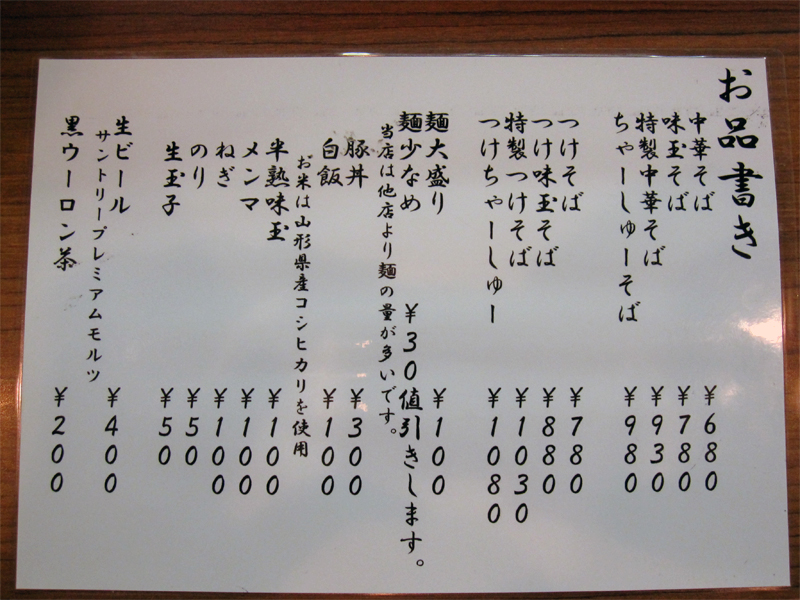 お品書き
中華そば ¥680
味玉そば ¥780
特製中華そば ¥930
ちゃーしゅーそば ¥980
つけそば ¥780
つけ味玉そば ¥880
特製つけそば ¥1030
つけちゃーしゅー ¥1080
麺大盛り ¥100
麺少なめ ¥30値引きします。
当店は他店より麺の量が多いです。
豚丼 ¥300
白飯 ¥100
お米は山形県産コシヒカリを使用
半熟味玉 ¥100
メンマ ¥100
ねぎ ¥100
のり ¥50
生玉子 ¥50
生ビール ¥400
サントリープレミアムモルツ
黒ウーロン茶 ¥200